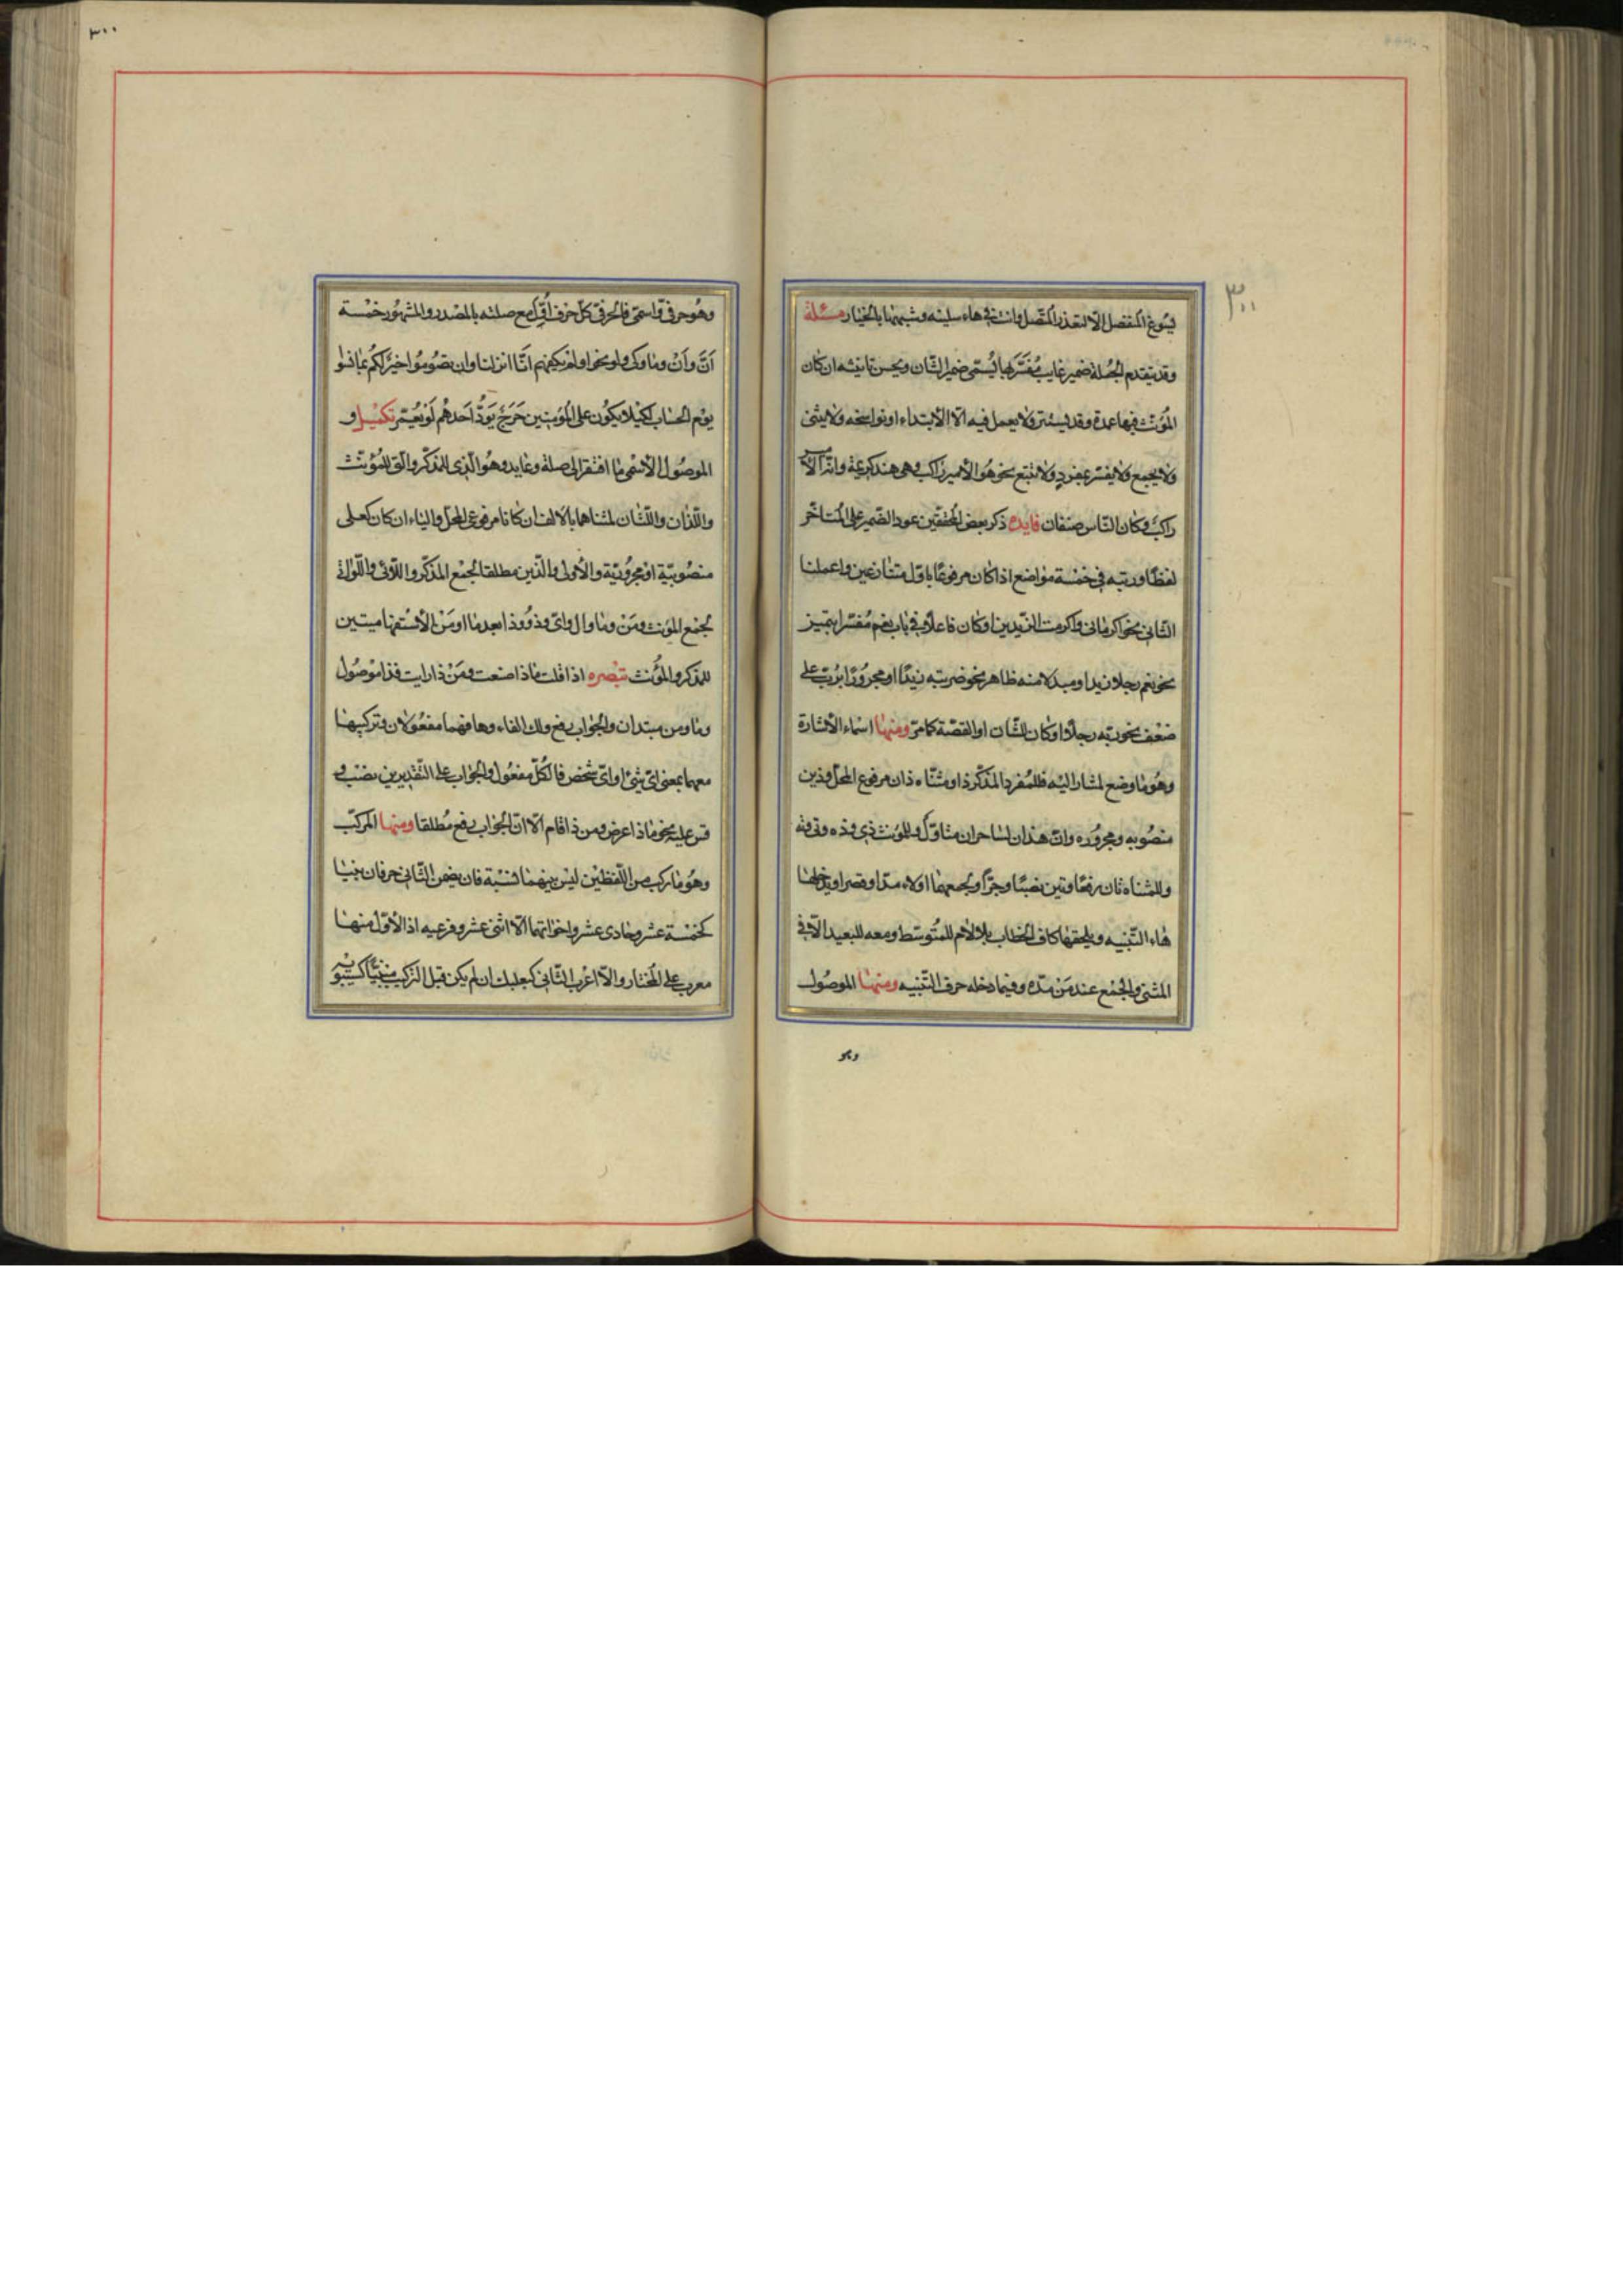 ٣٠٠
يسوغ المنفصل الا لتعذر المتصل وانت فى هاء سلنيه وشبهها بالخيار مسئلة
وقد يتقدم الجملة ضمير غايب مفسر بها يسمى ضمير الشان ويحسن تانيثه ان كان
المؤنث فيها عمدة وقد يستتر ولا يعمل فيه الا الابتداء او نواسخه ولا يثنى
ولا يجمع ولا يفسر بمفرد ولا يتبع نحو هو الامير راكب وهى هند كريمة وانه الامير
راكب وكان الناس صنفان فايده ذكر بعض المحققين عود الضمير على المتاخر
لفظا ورتبه فى خمسة مواضع اذا كان مرفوعا باول متنازعين واعملنا
الثانى نحو اكرمانى واكرمت الزيدين او كان فاعلا فى باب نعم مفسرا بتميز
نحو نعم رجلا زيد او مبدلا منه ظاهر نحو ضربته زيدا او مجرورا برب على
ضعف نحو ربه رجلا او كان للشان او القصة كما مر ومنها اسماء الاشارة
وهو ما وضع لمشار اليه فللمفرد المذكر ذا ومثناه ذان مرفوع المحل وذين
منصوبه ومجروره وان هذان لساحران متاول وللمؤنث ذى وذه وتى وته
وللمثناه تان رفعا وتين نصبا وجرا ولجمعهما اولاء مدا وقصرا ويدخلها
هاء التنبيه ويلحقها كاف الخطاب بلا لام للمتوسط ومعه للبعيد الا فى
المثنى والجمع عند من مده وفيما دخله حرف التنبيه ومنها الموصول
وهو
٣٠٠
وهو حرفى واسمى فالحرفى كل حرف اول مع صلته بالمصدر والمشهور خمسة
ان وان وما وكى ولو نحو اولم يكفهم انا انزلنا وان تصوموا خير لكم بما نسوا
يوم الحساب لكيلا يكون على المؤمنين حرج يود احدهم لو يعمر تكميل و
الموصول الاسمى ما افتقر الى صلة وعايد وهو الذى للمذكر والتى للمؤنث
واللذان واللتان لمثناهما بالالف ان كانا مرفوعى المحل والياء ان كان كعلى
منصوبيه او مجروريه والاولى والذين مطلقا لجمع المذكر واللائى واللواتى
لجمع المؤنث ومن وما وال واى وذو وذا بعد ما او من الاستفهاميتين
للمذكر والمؤنث تبصره اذا قلت ماذا صنعت ومن ذا رايت فذا موصول
وما ومن مبتدان والجواب رفع ولك الغاءوها فهما مفعولان وتركيبها
معهما بمعنى اى شئ او اى شخص فالكل مفعول والجواب على التقديرين نصب و
قس عليه نحو ماذا عرض ومن ذا قام الا ان الجواب رفع مطلقا ومنها المركب
وهو ما ركب من اللفظين ليس بينهما نسبة فان تضمن الثانى حرفان بنيا
كخمسة عشر وحادى عشر واخواتهما الا اثنى عشر وفرعيه اذ الاول منها
معرب على المختار والا اعرب الثانى كبعلبك ان لم يكن قبل التركيب مبنيا كسيبويه